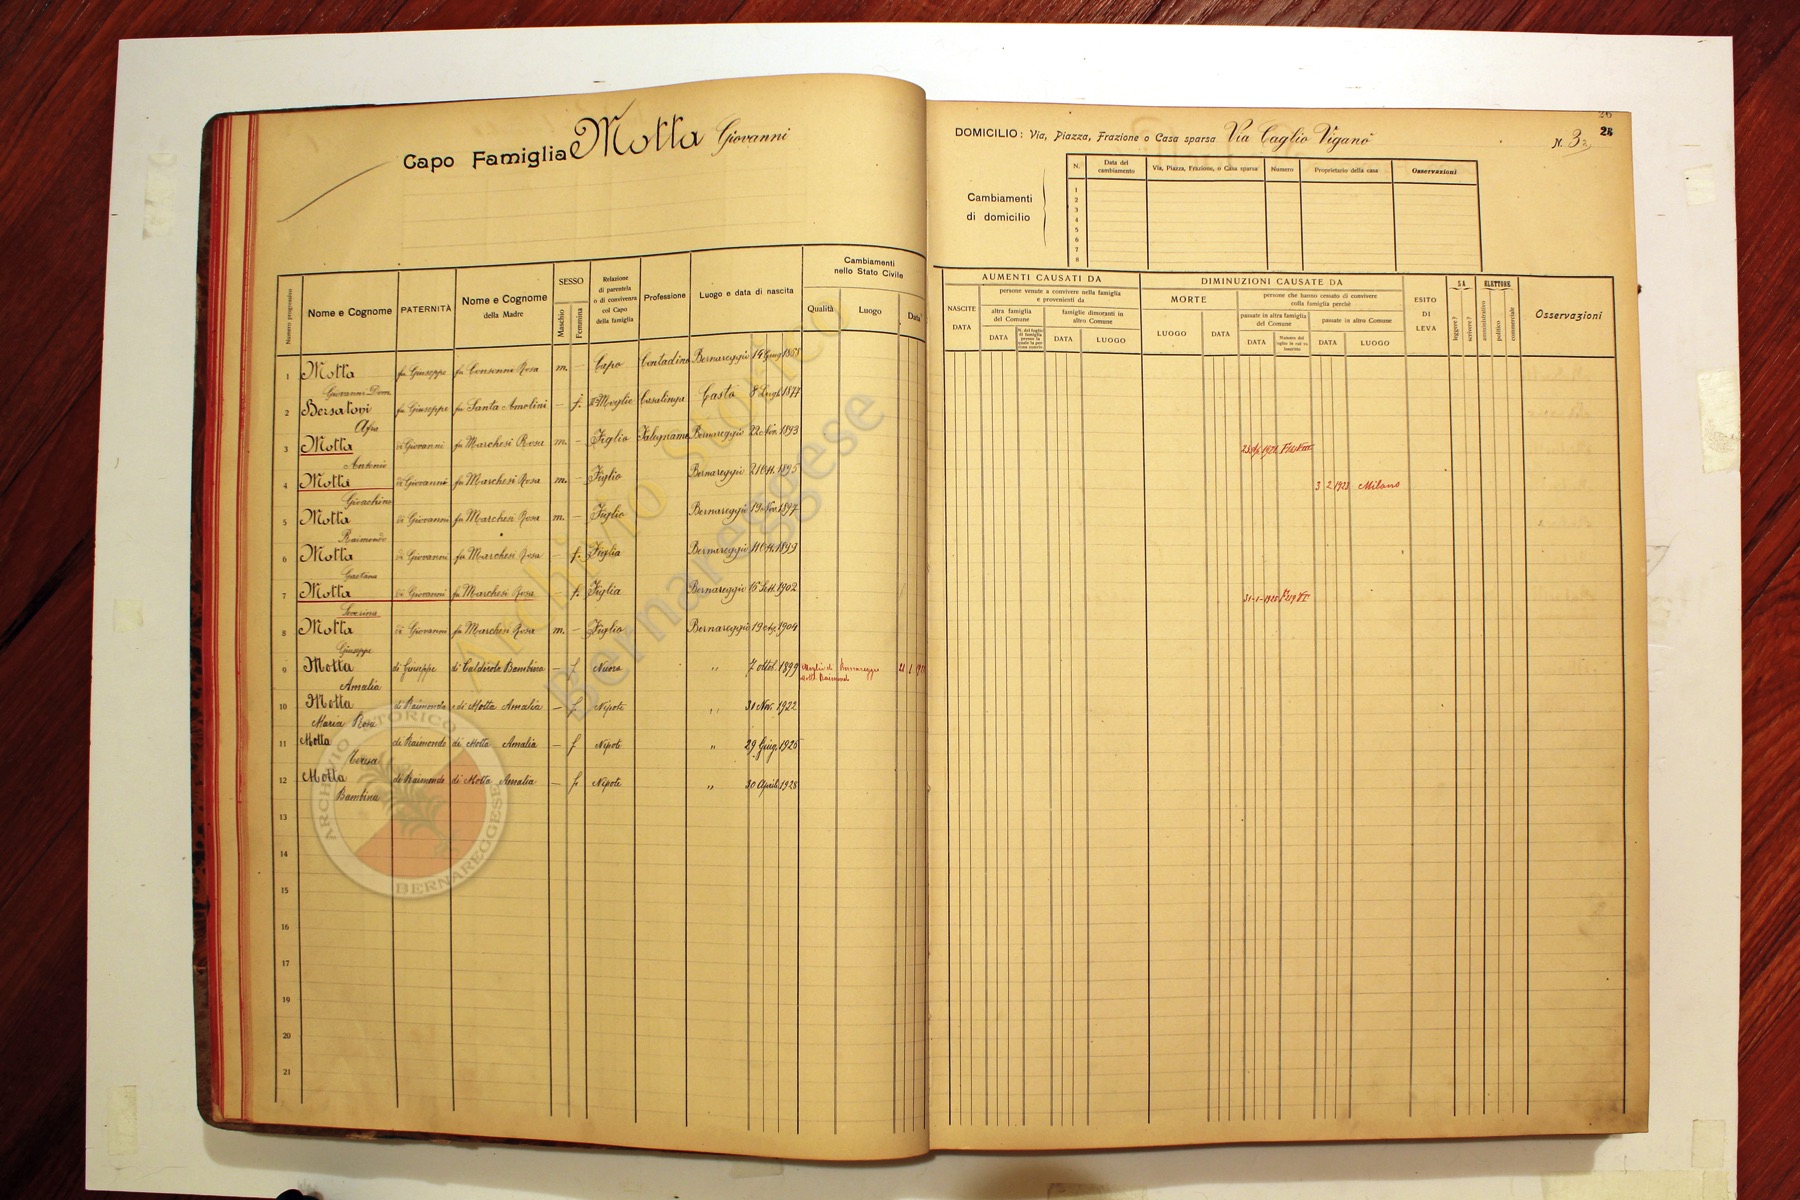 Capo Famiglia Motta Giovanni
Numero progressivo
Nome e Cognome
PATERNITÀ
Nome e Cognome
della Madre
SESSO
Maschio
Femmina
Relazione
di parentela
o di convivenza
col Capo
della famiglia
Professione
Luogo e data di nascita
Cambiamenti
nello Stato Civile
Qualità
Luogo
Data
1 Motta fu Giuseppe fu Consonni Rosa m. – Capo Contadino Bernareggio 14 Giug.
Giovanni Dom.
2 fu Giuseppe fu Santa – f. Moglie Casalinga 8 Lugl. 1877
Afra
3 Motta di Giovanni fu Marchesi Rosa m. – Figlio Falegname Bernareggio 22 Nov. 1893
Antonio
4 Motta di Giovanni fu Marchesi Rosa m. – Figlio Bernareggio 2 Ott. 1895
Gioachino
5 Motta di Giovanni fu Marchesi Rosa m. – Figlio Bernareggio 19 Nov. 1897
Raimondo
6 Motta di Giovanni fu Marchesi Rosa – f. Figlia Bernareggio
Gaetana
7 Motta di Giovanni fu Marchesi Rosa – f. Figlia Bernareggio 15 Sett. 1902
Severina
8 Motta di Giovanni fu Marchesi Rosa m. – Figlio Bernareggio 19 1904
Giuseppe
9 Motta di Giuseppe di Bambina – f Nuora " 7 ottob. 1899 Moglie di Bernareggio
Amalia Motta Raimondo
10 Motta di Raimondo di Motta Amalia – f Nipote " Nov. 1922
Maria Rosa
11 Motta di Raimondo di Motta Amalia – f Nipote " 29 Giug. 1925
Teresa
12 Motta di Raimondo di Motta Amalia – f Nipote " 30 Aprile 1928
Bambina
13
14
15
16
17
18
19
20
21
28
DOMICILIO: Via, Piazza, Frazione o Casa sparsa Via Caglio Viganò N. 32
Cambiamenti
di domicilio
N.
Data del
cambiamento
Via, Piazza, Frazione, o Casa sparsa
Numero
Proprietario della casa
Osservazioni
1
2
3
4
5
6
7
8
AUMENTI CAUSATI DA
NASCITE
DATA
persone venute a convivere nella famiglia
e provenienti da
altra famiglia
del Comune
DATA
N. del foglio
di famiglia
famiglie dimoranti in
altro Comune
DATA
LUOGO
DIMINUZIONI CAUSATE DA
MORTE
LUOGO
DATA
persone che hanno cessato di convivere
colla famiglia perchè
passate in altra famiglia
del Comune
DATA
Numero del
foglio in cui si
inscritto
passate in altro Comune
DATA
LUOGO
ESITO
DI
LEVA
SA
leggere?
scrivere?
ELETTORE
amministrativo
politico
commerciale
Osservazioni
3 2 1923 Milano
Archivio Storico
Bernareggese
ARCHIVIO STORICO
BERNAREGGESE